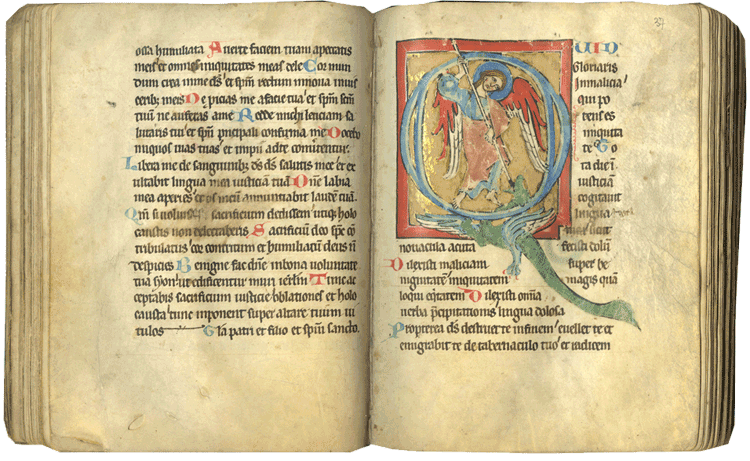 ossa humiliata Auerte faciem tuam apeccatis
meis et omnes iniquitates meas dele Cor mun
dum crea inme ds et spm rectum innoua inuis
ceribz meis Ne proicias me afacie tua et spm scm
tuū ne auferas ame Redde michi leticiam sa
lutaris tui et spu principali confirma me Docebo
iniquos uias tuas et impii adte conuertentur
Libera me de sanguinibz ds ds salutis mee et ex
ultabit lingua mea iusticiam tuā Dne labia
mea aperies et os meū annuntiabit laudē tuā
Qm si uoluisses sacrificium dedissem utiqz holo
caustis non delectaberis Sacrificiū deo spc cō
tribulatus cor contritum et humiliatū deus n
despicies Benigne fac dne inbona uoluntate
tua syon ut edificentur muri ierlm Tunc ac
ceptabis sacrificium iusticie oblationes et holo
causta tunc inponent super altare tuum ui
tulos Gla patri et filio et spui sancto
37
QUID
Gloriaris
Inmalicia
qui po
tens es
iniquita
te To
ta die
iusticiam
cogitauit
lingua
tua sicut
nouacula acuta fecisti dolū
Dilexisti maliciam super be
nignitatē iniquitatem magis quā
loqui eqtatem Dilexisti omīa
uerba pcipitationis lingua dolosa
Propterea ds destruet te infinem euellet te et
emigrabit te de tabernaculo tuo et radicem